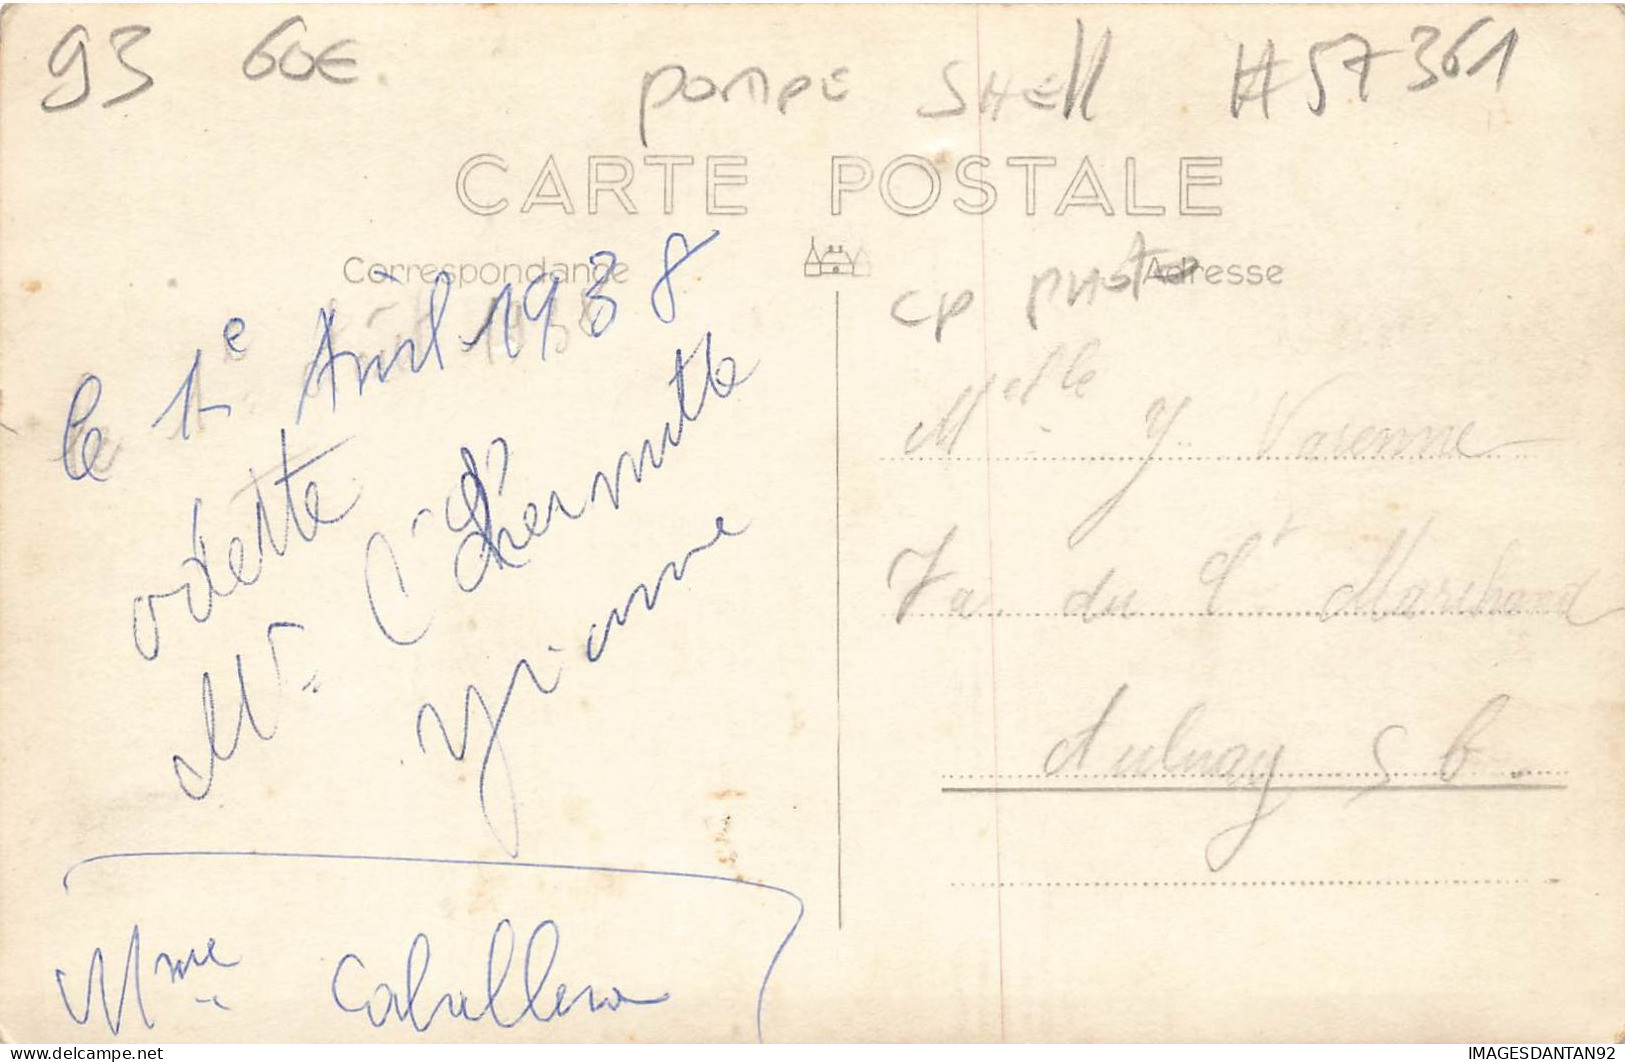 93 60€ pompe SHEll #57361
CARTE POSTALE
Correspondance Adresse
cp photo
le 1e Avril 1938
Odette
Mr. L'hermitte
Yvonne
Mme Caballero
Melle Y. Varenne
du Marchand
Aulnay s b.
IMAGESDANTAN92
www.delcampe.net